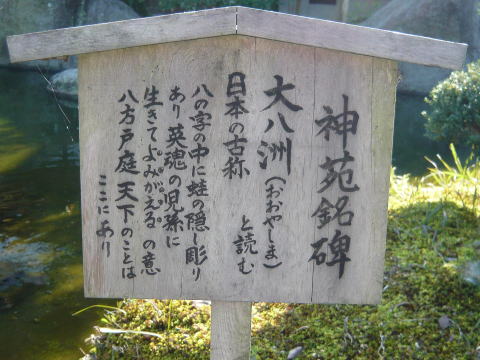 神苑銘碑
大八洲(おおやしま)と読む
日本の古称
八の字の中に蛙の隠し彫り
あり 英魂の児孫に
生きてよみがえる の意
八方戸庭 天下のことは
ここにあり